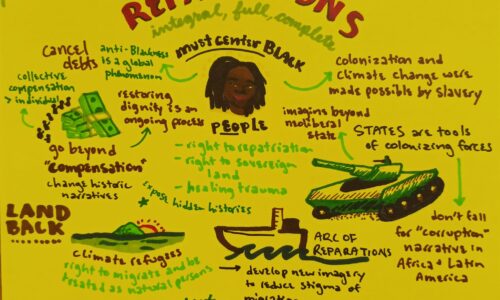 REPARATIONS
integral, full, complete
must center BLACK
PEOPLE
- right to repatriation
- right to sovereign
land
- healing trauma
cancel
debts
collective
compensation
> individual
anti-Blackness
is a global
phenomenon
restoring
dignity is an
ongoing process
go beyond
"compensation"
change historic
narratives
expose hidden histories
colonization and
climate change were
made possible by slavery
imagine beyond
neoliberal
state
STATES are tools
of colonizing forces
don't fall
for "corruption"
narrative in
Africa + Latin
America
LAND
BACK
climate refugees
right to migrate and be
treated as natural persons
ARC OF
REPARATIONS
develop new imagery
to reduce stigma of